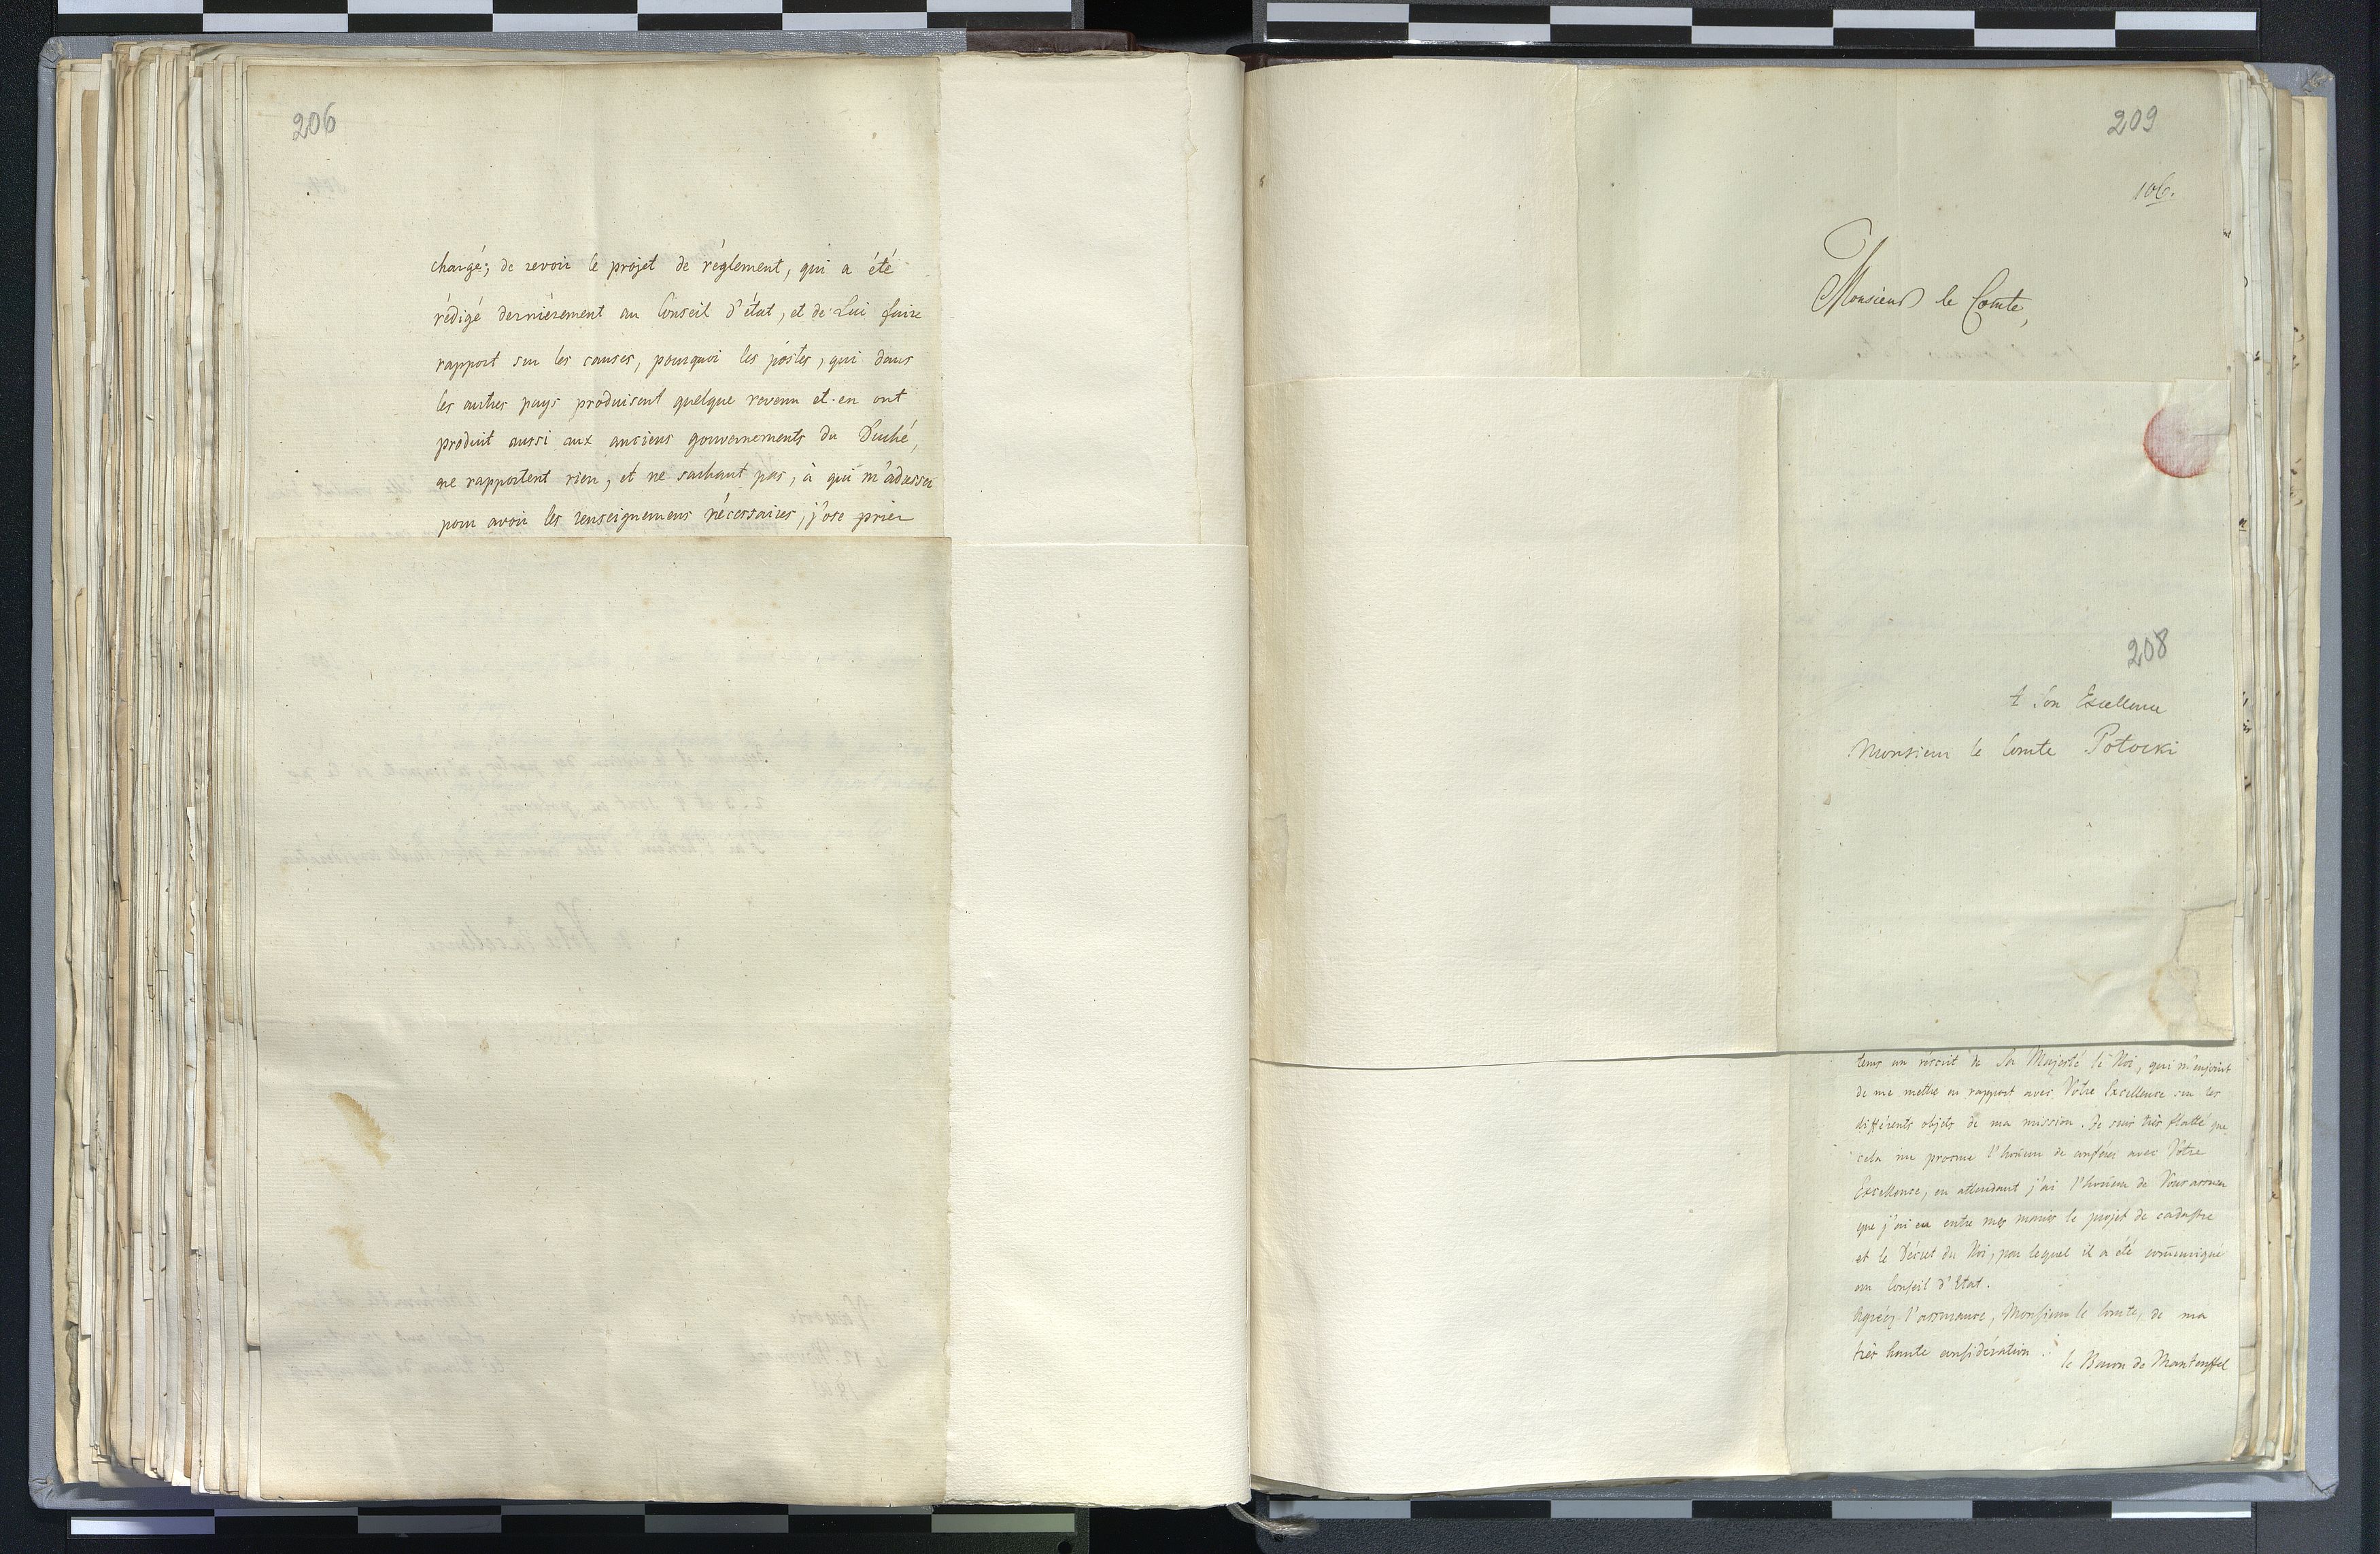 206
chargé; de revoir le projet de réglement, qui a été
rédigé dernièrement au Conseil d'état, et de Lui faire
rapport sur les causes, pourquoi les postes, qui dans
les autres pays produisent quelque revenu et en ont
produit aussi aux anciens gouvernements du Duché,
ne rapportent rien, et ne sachant pas, à qui m'adresser
pour avoir les renseignemens nécessaires, j'ose prier
209
106.
Monsieur le Comte,
208
A Son Excellence
Monsieur le Comte Potocki
tems un réscrit de Sa Majesté le Roi, qui m'enjoint
de me mettre en rapport avec Votre Excellence sur les
différents objets de ma mission. Je suis très flatté que
cela me procure l'hon̄eur de conférer avec Votre
Excellence, en attendant j'ai l'hon̄eur de Vous assurer
que j'ai eu entre mes mains le projet de cadastre
et le Décret du Roi, par lequel il a été com̄uniqué
au Conseil d'Etat.
Agréez l'assurance, Monsieur le Comte, de ma
très haute considération.
le Baron de Manteuffel